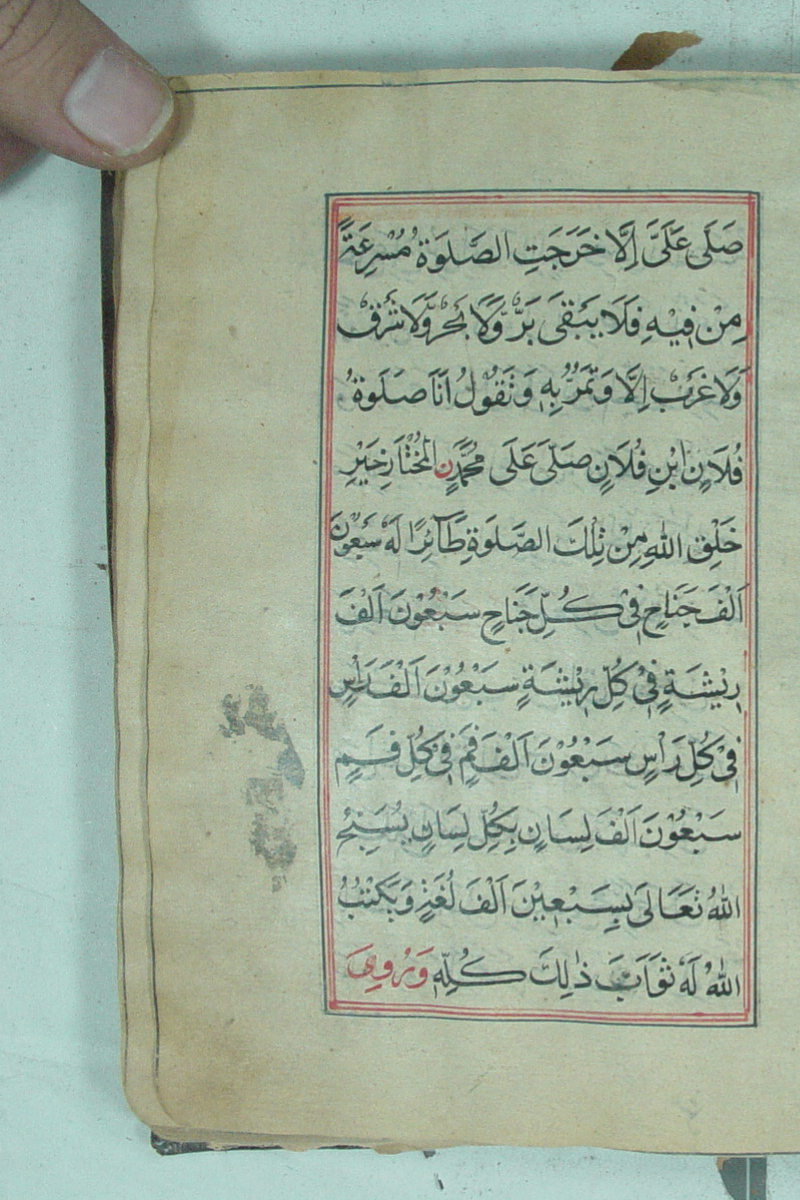 صَلَّى عَلَىَّ اِلَّا خَرَجَتِ الصَّلٰوةُ مُسْرِعَةً
مِنْ فِيْهِ فَلَا يَبْقٰى بَرٌّ وَّلَا بَحْرٌ وَّلَا شَرْقٌ
وَّلَا غَرْبٌ اِلَّا وَتَمُرُّ بِهٖ وَتَقُوْلُ اَنَا صَلٰوةُ
فُلَانِ ابْنِ فُلَانٍ صَلّٰى عَلٰى مُحَمَّدِنِ الْمُخْتَارِ خَيْرِ
خَلْقِ اللهِ مِنْ تِلْكَ الصَّلٰوةِ طَآئِرًا لَهٗ سَبْعُوْنَ
اَلْفَ جَنَاحٍ فِيْ كُلِّ جَنَاحٍ سَبْعُوْنَ اَلْفَ
رِيْشَةٍ فِيْ كُلِّ رِيْشَةٍ سَبْعُوْنَ اَلْفَ رَاْسٍ
فِيْ كُلِّ رَاْسٍ سَبْعُوْنَ اَلْفَ فَمٍ فِيْ كُلِّ فَمٍ
سَبْعُوْنَ اَلْفَ لِسَانٍ بِكُلِّ لِسَانٍ يُسَبِّحُ
اللهَ تَعَالٰى بِسَبْعِيْنَ اَلْفَ لُغَةٍ وَيَكْتُبُ
اللهُ لَهٗ ثَوَابَ ذٰلِكَ كُلِّهٖ وَرُوِىَ